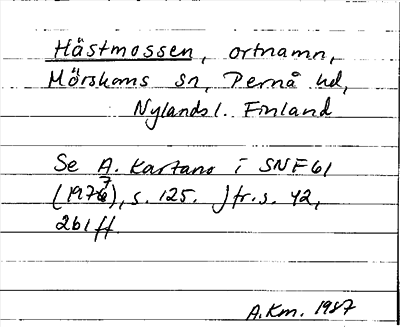 Hästmossen, ortnamn,
Mörskoms sn, Pernå hd,
Nylands l. Finland
Se A. Kartano i SNF 61
(1977), s. 125. Jfr. s. 42,
261 ff.
A.Km. 1987